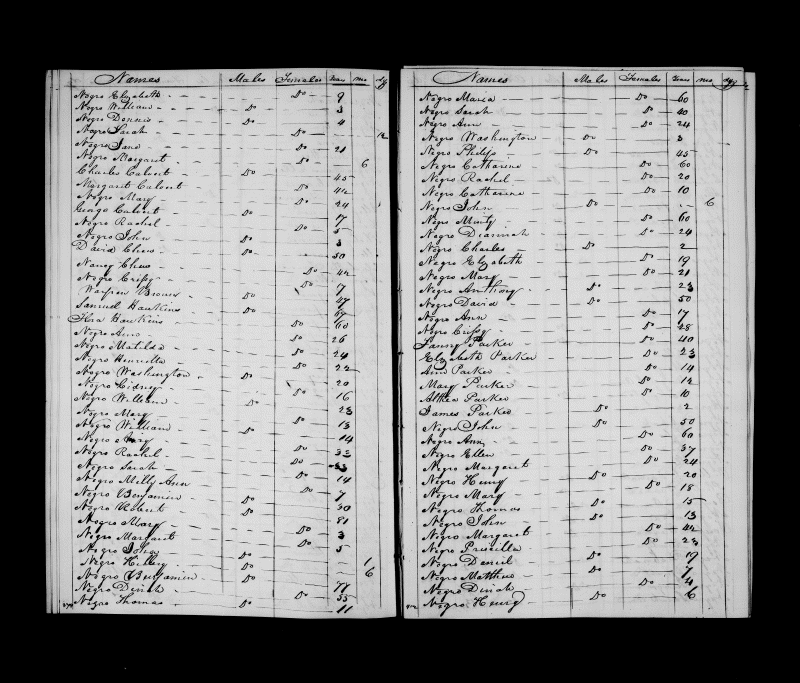 Names Males Females Years Mos Dys
Negro Elizabeth Do 9
Negro William Do 3
Negro Dennis Do 4
Negro Sarah Do 12
Negro Jane Do 21
Negro Margaret Do 6
Charles Calvert Do 45
Margaret Calvert Do 42
Negro Mary Do 24
George Calvert Do 17
Negro Rachel Do 5
Negro John Do 3
David Chew Do 50
Nancy Chew Do 42
Negro Crissy Do 7
Brown Do 47
Samuel Hawkins Do 67
Hawkins Do 60
Negro Ann Do 26
Negro Matilda Do 24
Negro Henrietta Do 22
Negro Washington Do 20
Negro Sidney Do 16
Negro William Do 23
Negro Mary Do 13
Negro William Do 14
Negro Amy Do 33
Negro Rachel Do
Negro Sarah Do 14
Negro Milly Ann Do 7
Negro Benjamin Do 30
Negro Robert Do 21
Negro Mary Do 3
Negro Margaret Do 5
Negro Do 1
Negro Hillery Do 6
Negro Benjamin Do
Negro Dinah Do 55
Negro Thomas Do 11
Names Males Females Years Mos Dys
Negro Maria Do 60
Negro Sarah Do 40
Negro Ann Do 24
Negro Washington Do 3
Negro Philip Do 45
Negro Catharine Do 60
Negro Rachel Do 20
Negro Catharine Do 10
Negro John Do 6
Negro Minty Do 60
Negro Diannah Do 24
Negro Charles Do 2
Negro Elizabeth Do 19
Negro Mary Do 21
Negro Anthony Do 23
Negro David Do 50
Negro Ann Do 17
Negro Crissy Do 28
Fanny Parker Do 40
Elizabeth Parker Do 23
Ann Parker Do 14
Mary Parker Do 12
Althea Parker Do 10
James Parker Do 2
Negro John Do 50
Negro Ann Do 60
Negro Ellen Do 37
Negro Margaret Do 24
Negro Henry Do 20
Negro Mary Do 18
Negro Thomas Do 15
Negro John Do 13
Negro Margaret Do 42
Negro Priscilla Do 23
Negro Daniel Do 19
Negro Matthew Do 7
Negro Dinah Do 4
Negro Henry Do 6